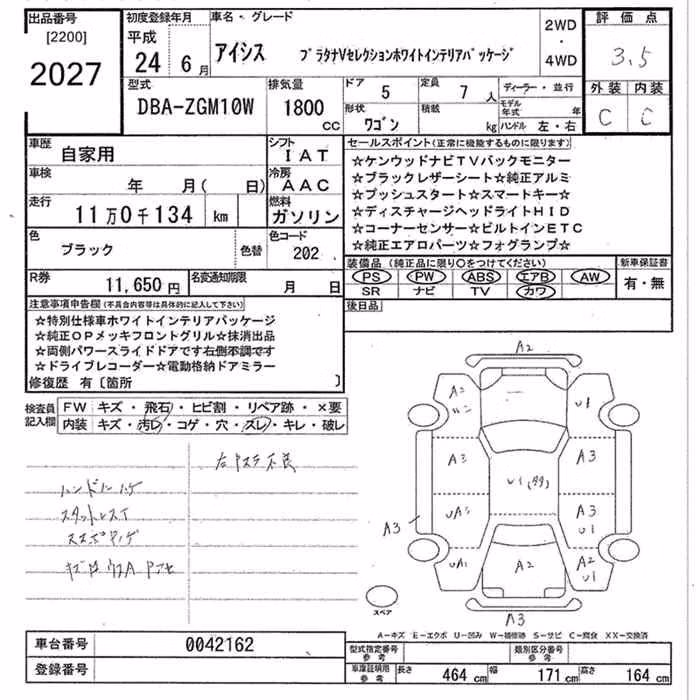 出品番号
[2200]
2027
初度登録年月
平成
24 6月
車名・グレード
アイシス プラタナVセレクションホワイトインテリアパッケージ
2WD
・
4WD
評価点
3.5
外装 内装
C C
型式
DBA-ZGM10W
排気量
1800
cc
ドア
5
定員
7人
形状
ワゴン
積載
kg
ディーラー・並行
モデル年式 年
ハンドル 左・右
車歴
自家用
シフト
IAT
車検
年 月( 日)
冷房
AAC
走行
11万0千134 km
燃料
ガソリン
色
ブラック
色替
色コード
202
R券
11,650円
名変通知期限
月 日
セールスポイント(正常に機能するものに限ります)
☆ケンウッドナビTVバックモニター
☆ブラックレザーシート☆純正アルミ
☆プッシュスタート☆スマートキー☆
☆ディスチャージヘッドライトHID
☆コーナーセンサー☆ビルトインETC
☆純正エアロパーツ☆フォグランプ☆
装備品(純正品に限り○をつけてください)
新車保証書
PS PW ABS エアB AW
SR ナビ TV カワ
有・無
後日品
注意事項申告欄(不具合内容等は具体的に記入して下さい)
☆特別仕様車ホワイトインテリアパッケージ
☆純正OPメッキフロントグリル☆抹消出品
☆両側パワースライドドアです右側不調です
☆ドライブレコーダー☆電動格納ドアミラー
修復歴 有〔箇所 〕
検査員記入欄
FW キズ・飛石・ヒビ割・リペア跡・×要
内装 キズ・汚レ・コゲ・穴・スレ・キレ・破レ
ハンドルハゲ
スタットレス
A2
A2
U1
A3
A3
A3
U1
A3
U1
A2
A2
U1
A3
スペア
A-キズ E-エクボ U-凹み W-補修跡 S-サビ C-腐食 XX-交換済
車台番号
0042162
登録番号
型式指定番号
参考
類別区分番号
参考
車庫証明用
参考
長さ
464 cm
幅
171 cm
高さ
164 cm